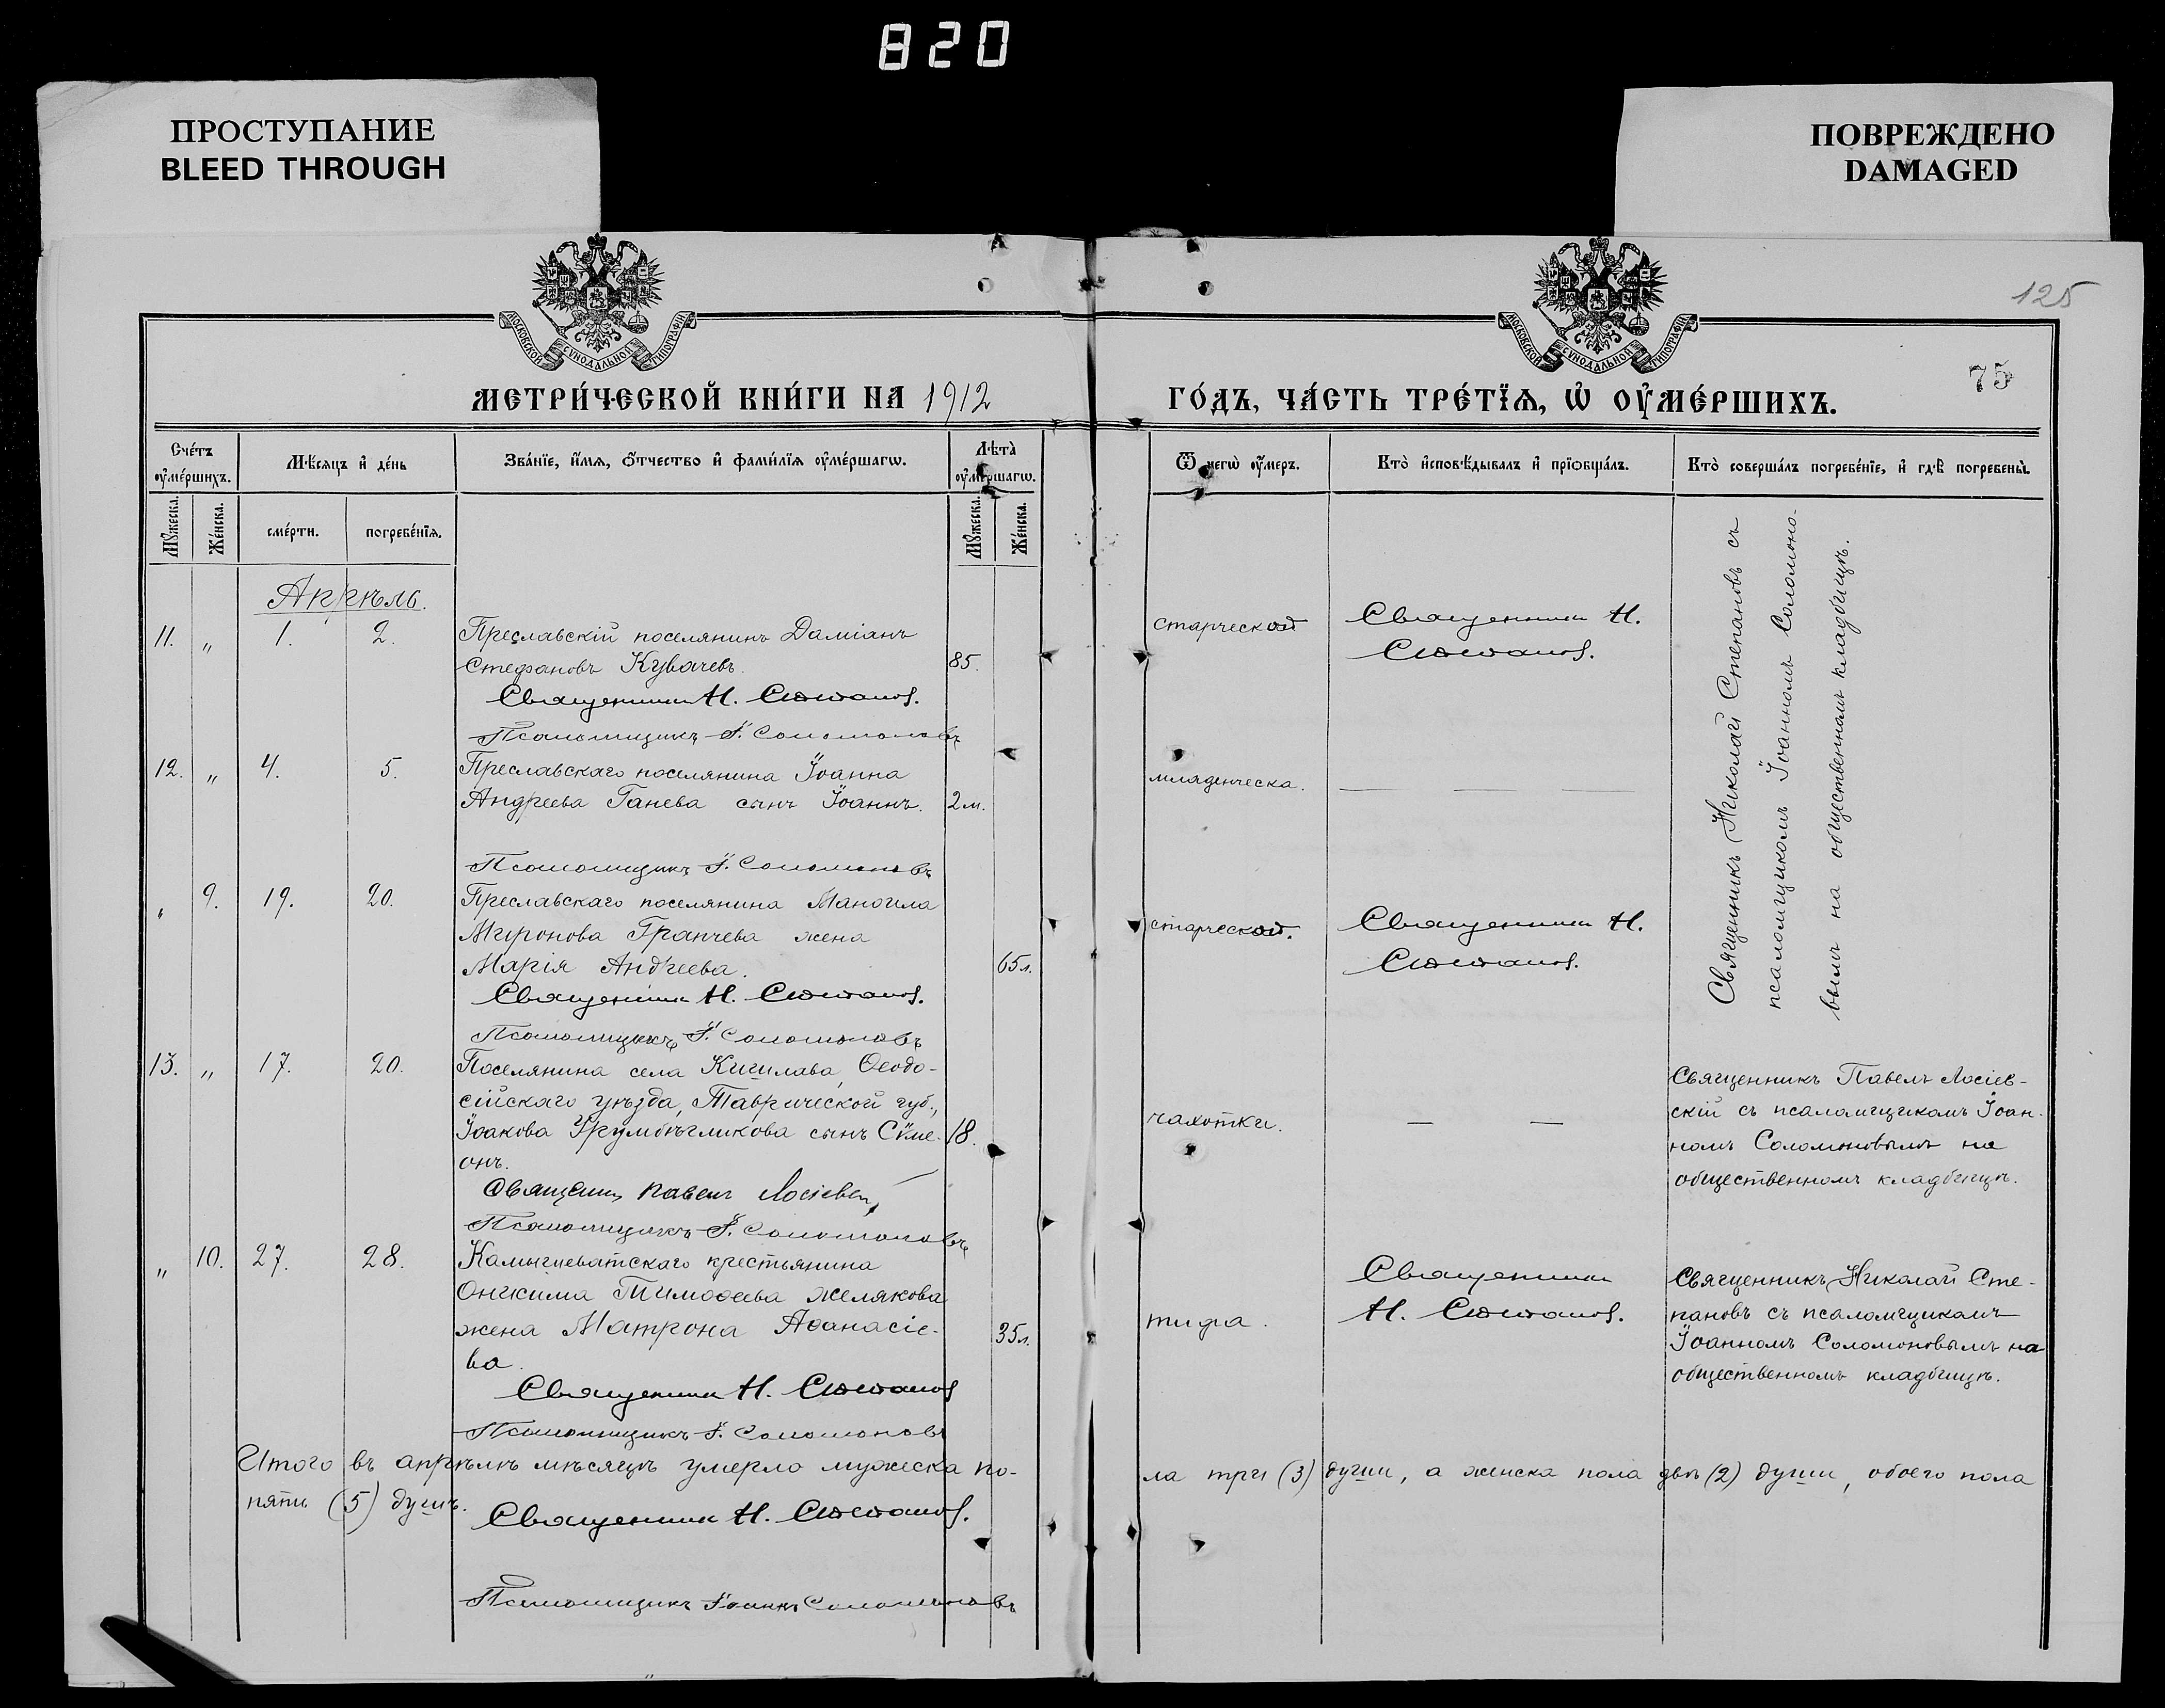 820
ПРОСТУПАНИЕ
BLEED THROUGH
ПОВРЕЖДЕНО
DAMAGED
125
75
МОСКОВСКОЙ СѴНОДАЛЬНОЙ ТИПОГРАФІИ
МОСКОВСКОЙ СѴНОДАЛЬНОЙ ТИПОГРАФІИ
МЕТРИ́ЧЕСКОЙ КНИ́ГИ НА 1912 ГО́ДЪ, ЧА́СТЬ ТРЕ́ТЇѦ, Ѡ҆ ОУ҆МЕ́РШИХЪ.
Сче́тъ оу҆ме́ршихъ.
Мꙋжеска.
Же́нска.
Мѣ́сѧцъ и҆ де́нь
сме́рти.
погребе́нїѧ.
Зва́нїе, и҆́мѧ, ѻ҆́тчество и҆ фами́лїѧ оу҆ме́ршагѡ.
Лѣ̀та оу҆ме́ршагѡ.
Мꙋжеска.
Же́нска.
Ѿ чегѡ̀ оу҆́меръ.
Кто̀ и҆сповѣ́дывалъ и҆ прїѡбща́лъ.
Кто̀ соверша́лъ погребе́нїе, и҆ гдѣ̀ погребены̀.
Апрѣль.
11. „ 1. 2. Преславскій поселянинъ Даміанъ
Стефановъ Кувачевъ. 85.
Священникъ Н. Степановъ.
Псаломщикъ І. Соломоновъ
старческой
Священникъ Н.
Степановъ.
12. „ 4. 5. Преславскаго поселянина Іоанна
Андреева Ганева сынъ Іоаннъ. 2 м.
Псаломщикъ І. Соломоновъ
младенческа.
„ 9. 19. 20. Преславскаго поселянина Маноила
Миронова Гранчева жена
Марія Андреева. 65 л.
Священникъ Н. Степановъ.
Псаломщикъ І. Соломоновъ
старческой.
Священникъ Н.
Степановъ.
Священникъ Николай Степановъ съ
псаломщикомъ Іоанномъ Соломоно-
вымъ на общественномъ кладбищѣ.
13. „ 17. 20. Поселянина села Кишлава, Ѳеодо-
сійскаго уѣзда, Таврической губ.,
Іоакова Урумбѣгликова сынъ Сѵме- 18.
онъ.
Священникъ Павелъ Лосіевскій
Псаломщикъ І. Соломоновъ
чахотки.
Священникъ Павелъ Лосіев-
скій съ псаломщикомъ Іоан-
номъ Соломоновымъ на
общественномъ кладбищѣ.
„ 10. 27. 28. Камышеватскаго крестьянина
Онисима Тимоѳеева Желякова
жена Матрона Аѳанасіе- 35 л.
ва.
Священникъ Н. Степановъ
Псаломщикъ І. Соломоновъ
тифа.
Священникъ
Н. Степановъ.
Священникъ Николай Сте-
пановъ съ псаломщикомъ
Іоанномъ Соломоновымъ на
общественномъ кладбищѣ.
Итого въ апрѣлѣ мѣсяцѣ умерло мужеска по-
ла три (3) души, а женска пола двѣ (2) души, обоего пола
пять (5) душъ.
Священникъ Н. Степановъ.
Псаломщикъ Іоаннъ Соломоновъ